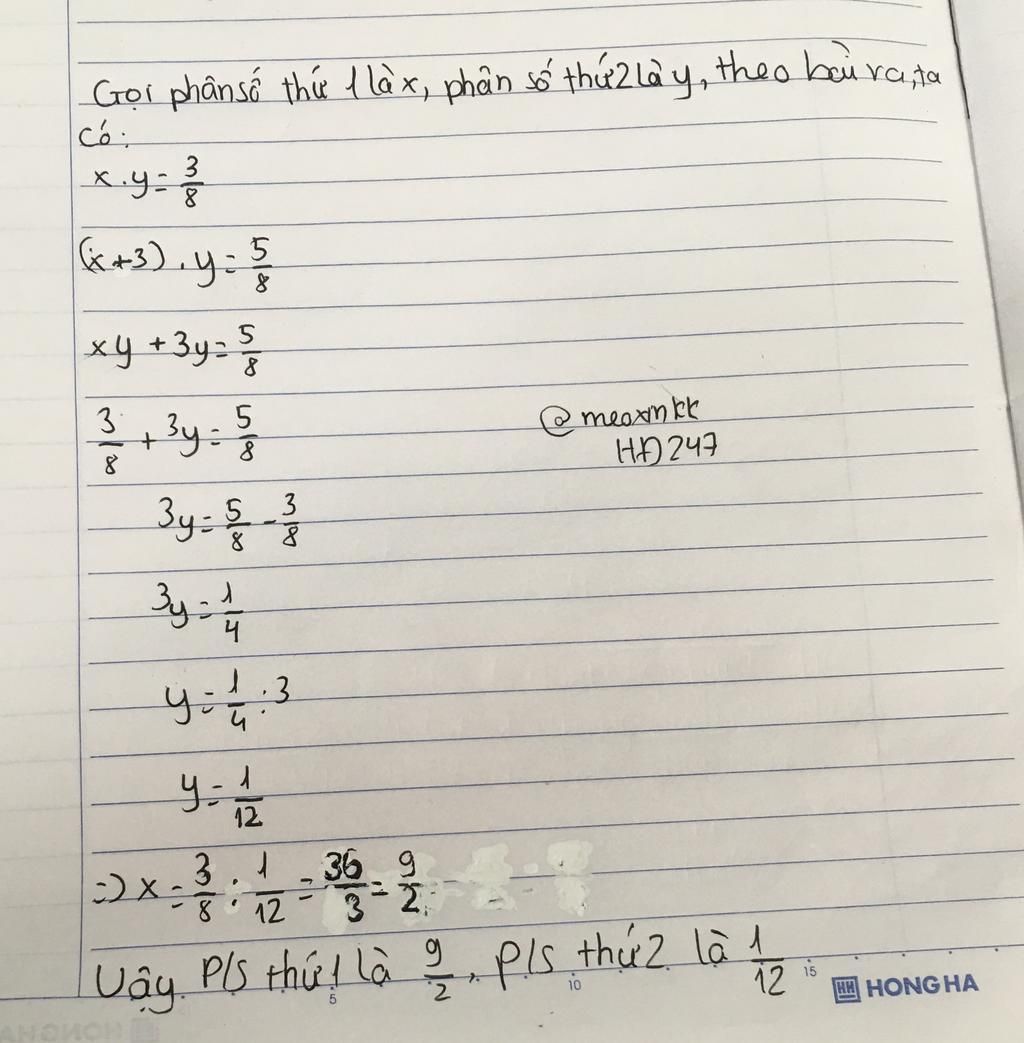 Gọi phân số thứ 1 là x, phân số thứ 2 là y, theo bài ra, ta
có:
x.y = 3/8
(x+3).y = 5/8
xy + 3y = 5/8
3/8 + 3y = 5/8
@meoxinkk
HĐ247
3y = 5/8 - 3/8
3y = 1/4
y = 1/4 : 3
y = 1/12
=> x = 3/8 : 1/12 = 36/3 = 9/2
Vậy P/S thứ 1 là 9/2, P/S thứ 2 là 1/12
5 10 15
HH HONG HA